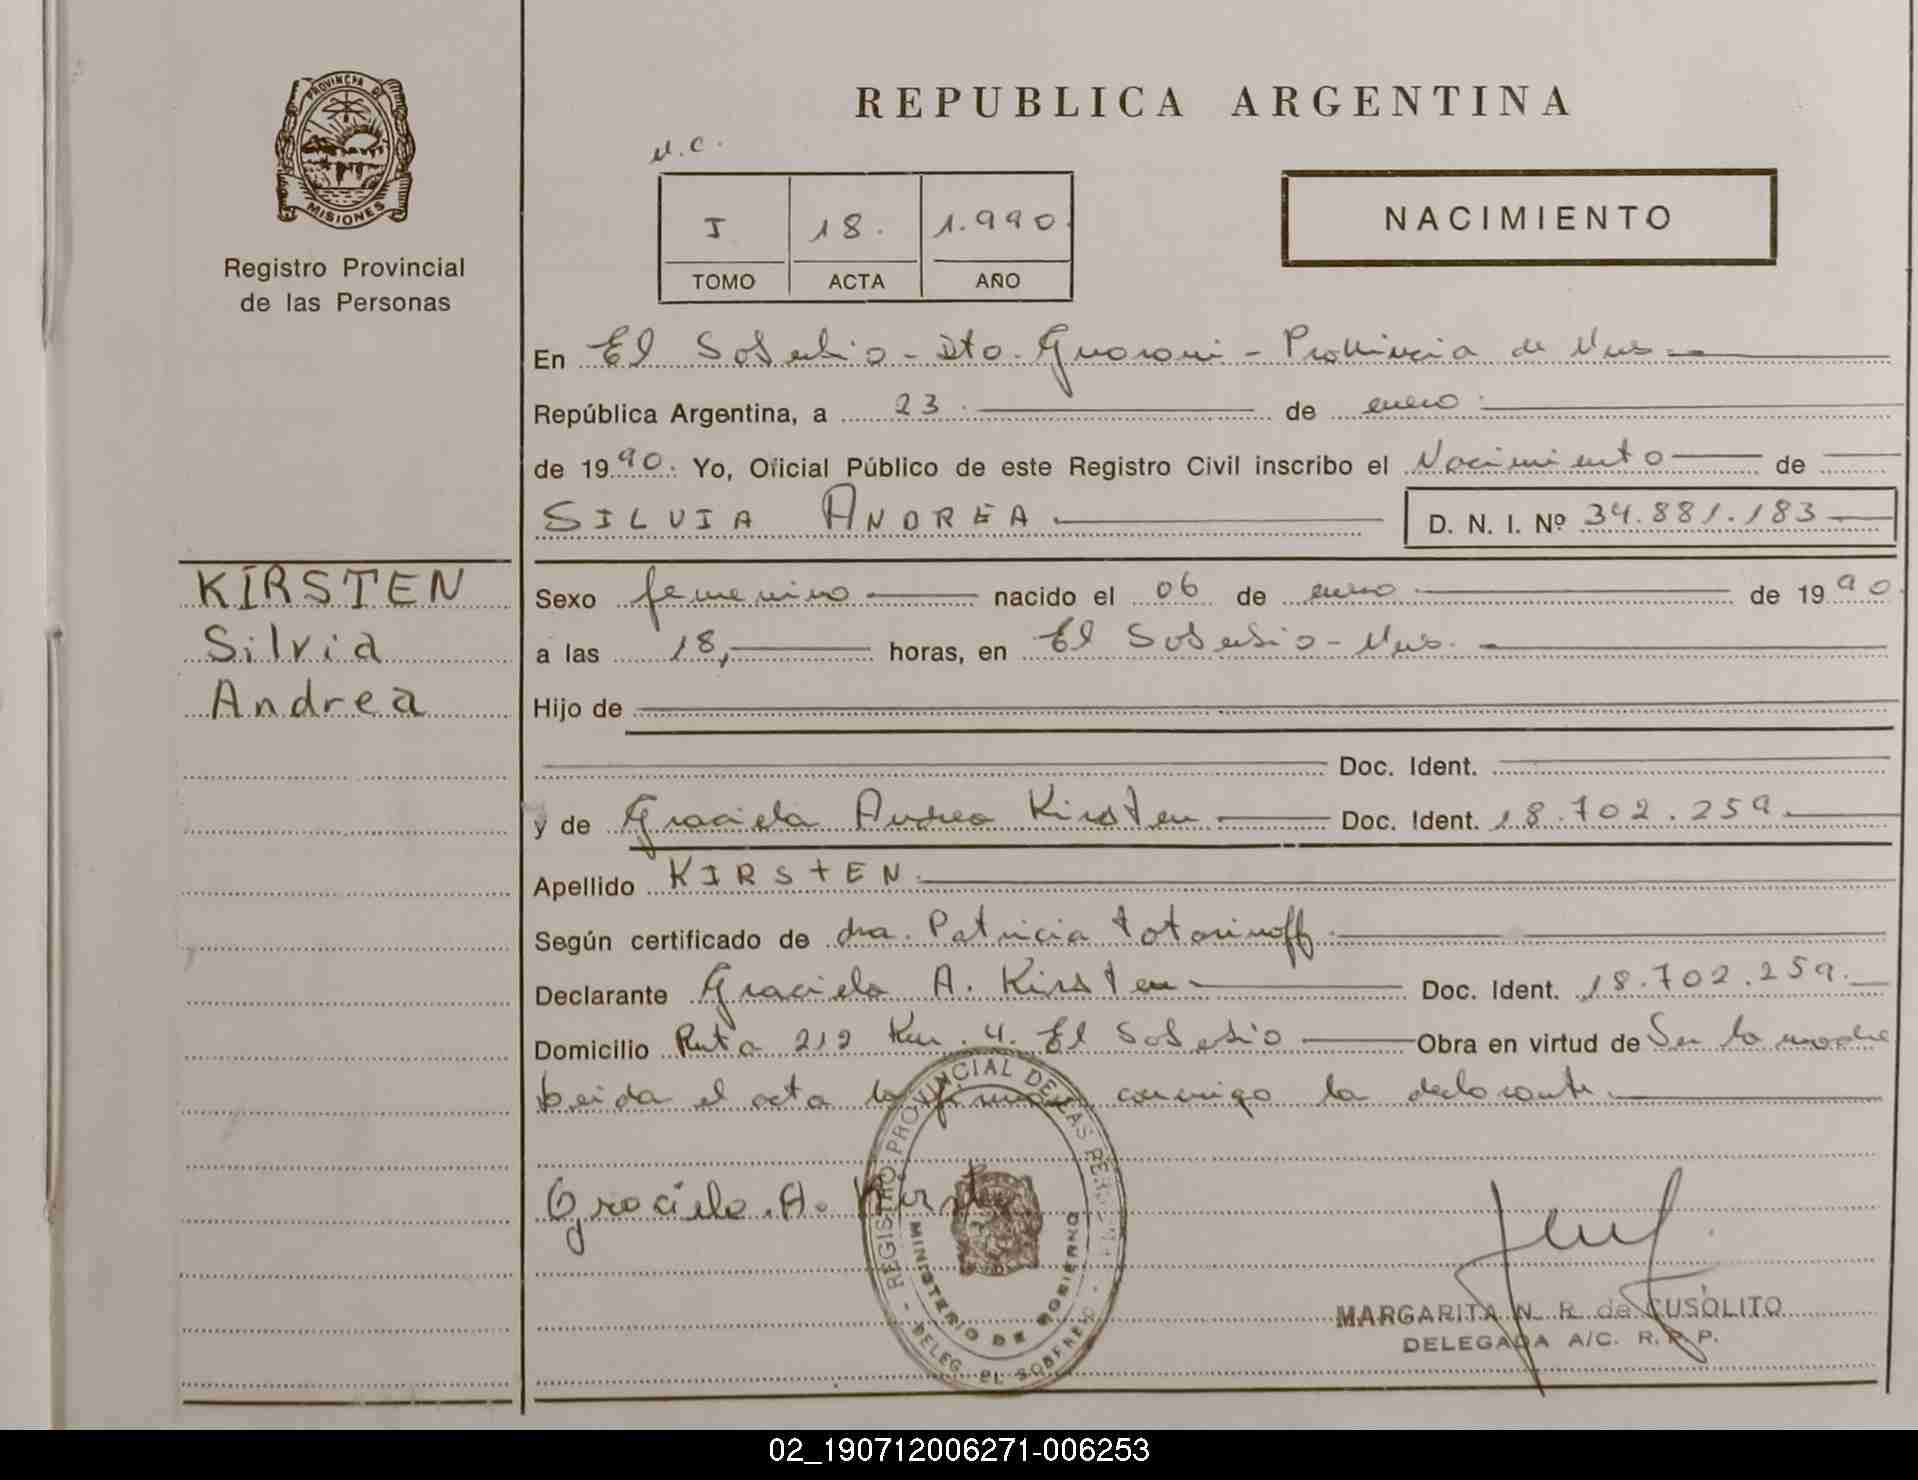 PROVINCIA DE
MISIONES
Registro Provincial
de las Personas
REPUBLICA ARGENTINA
N.C.
I 18. 1.990.
TOMO ACTA AÑO
NACIMIENTO
En El Soberbio - Dto. Guarani - Provincia de Mnes
República Argentina, a 23 de enero
de 1990. Yo, Oficial Público de este Registro Civil inscribo el Nacimiento de
SILVIA ANDREA D. N. I. Nº 34.881.183
KIRSTEN
Silvia
Andrea
Sexo femenino nacido el 06 de enero de 1990.
a las 18, horas, en El Soberbio - Mnes.
Hijo de
Doc. Ident.
y de Graciela Andrea Kirsten Doc. Ident. 18.702.259.
Apellido KIRSTEN.
Según certificado de dra. Patricia Totorinoff.
Declarante Graciela A. Kirsten Doc. Ident. 18.702.259.
Domicilio Ruta 212 Km. 4. El Soberbio Obra en virtud de Ser la madre
Leida el acta la firma conmigo la declarante
Graciela A. Kirsten
REGISTRO PROVINCIAL DE LAS PERSONAS
MINISTERIO DE GOBIERNO
DELEG. EL SOBERBIO
MARGARITA N. R. de CUSOLITO
DELEGADA A/C. R. P. P.
02_190712006271-006253